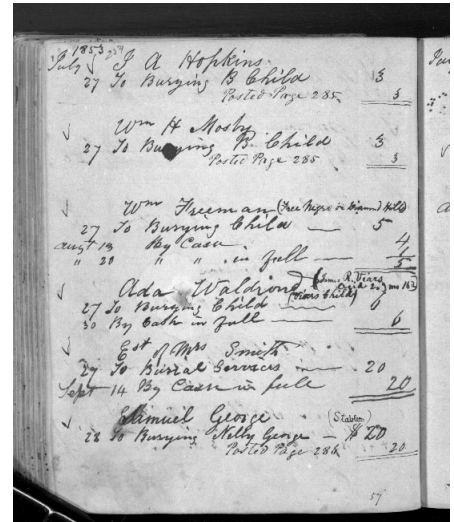 1853
July J A Hopkins
27 To Burying B Child 3
Posted Page 285 3
Wm H Mosby
27 To Burying B. Child 3
Posted Page 285 3
Wm Freeman (Free Negro on Diamond Hill)
27 To Burying Child — 5
Augt 13 By Cash 4
" 20 " " in full — 1
5
Ada Waldron
(Viars Child)
27 To Burying Child 6
30 By Cash in full — 6
Est of Mrs Smith
29 To Burial Services — 20
Sept 14 By Cash in full 20
Samuel George (Stabler)
28 To Burying Nelly George — $20
Posted Page 286 20
57